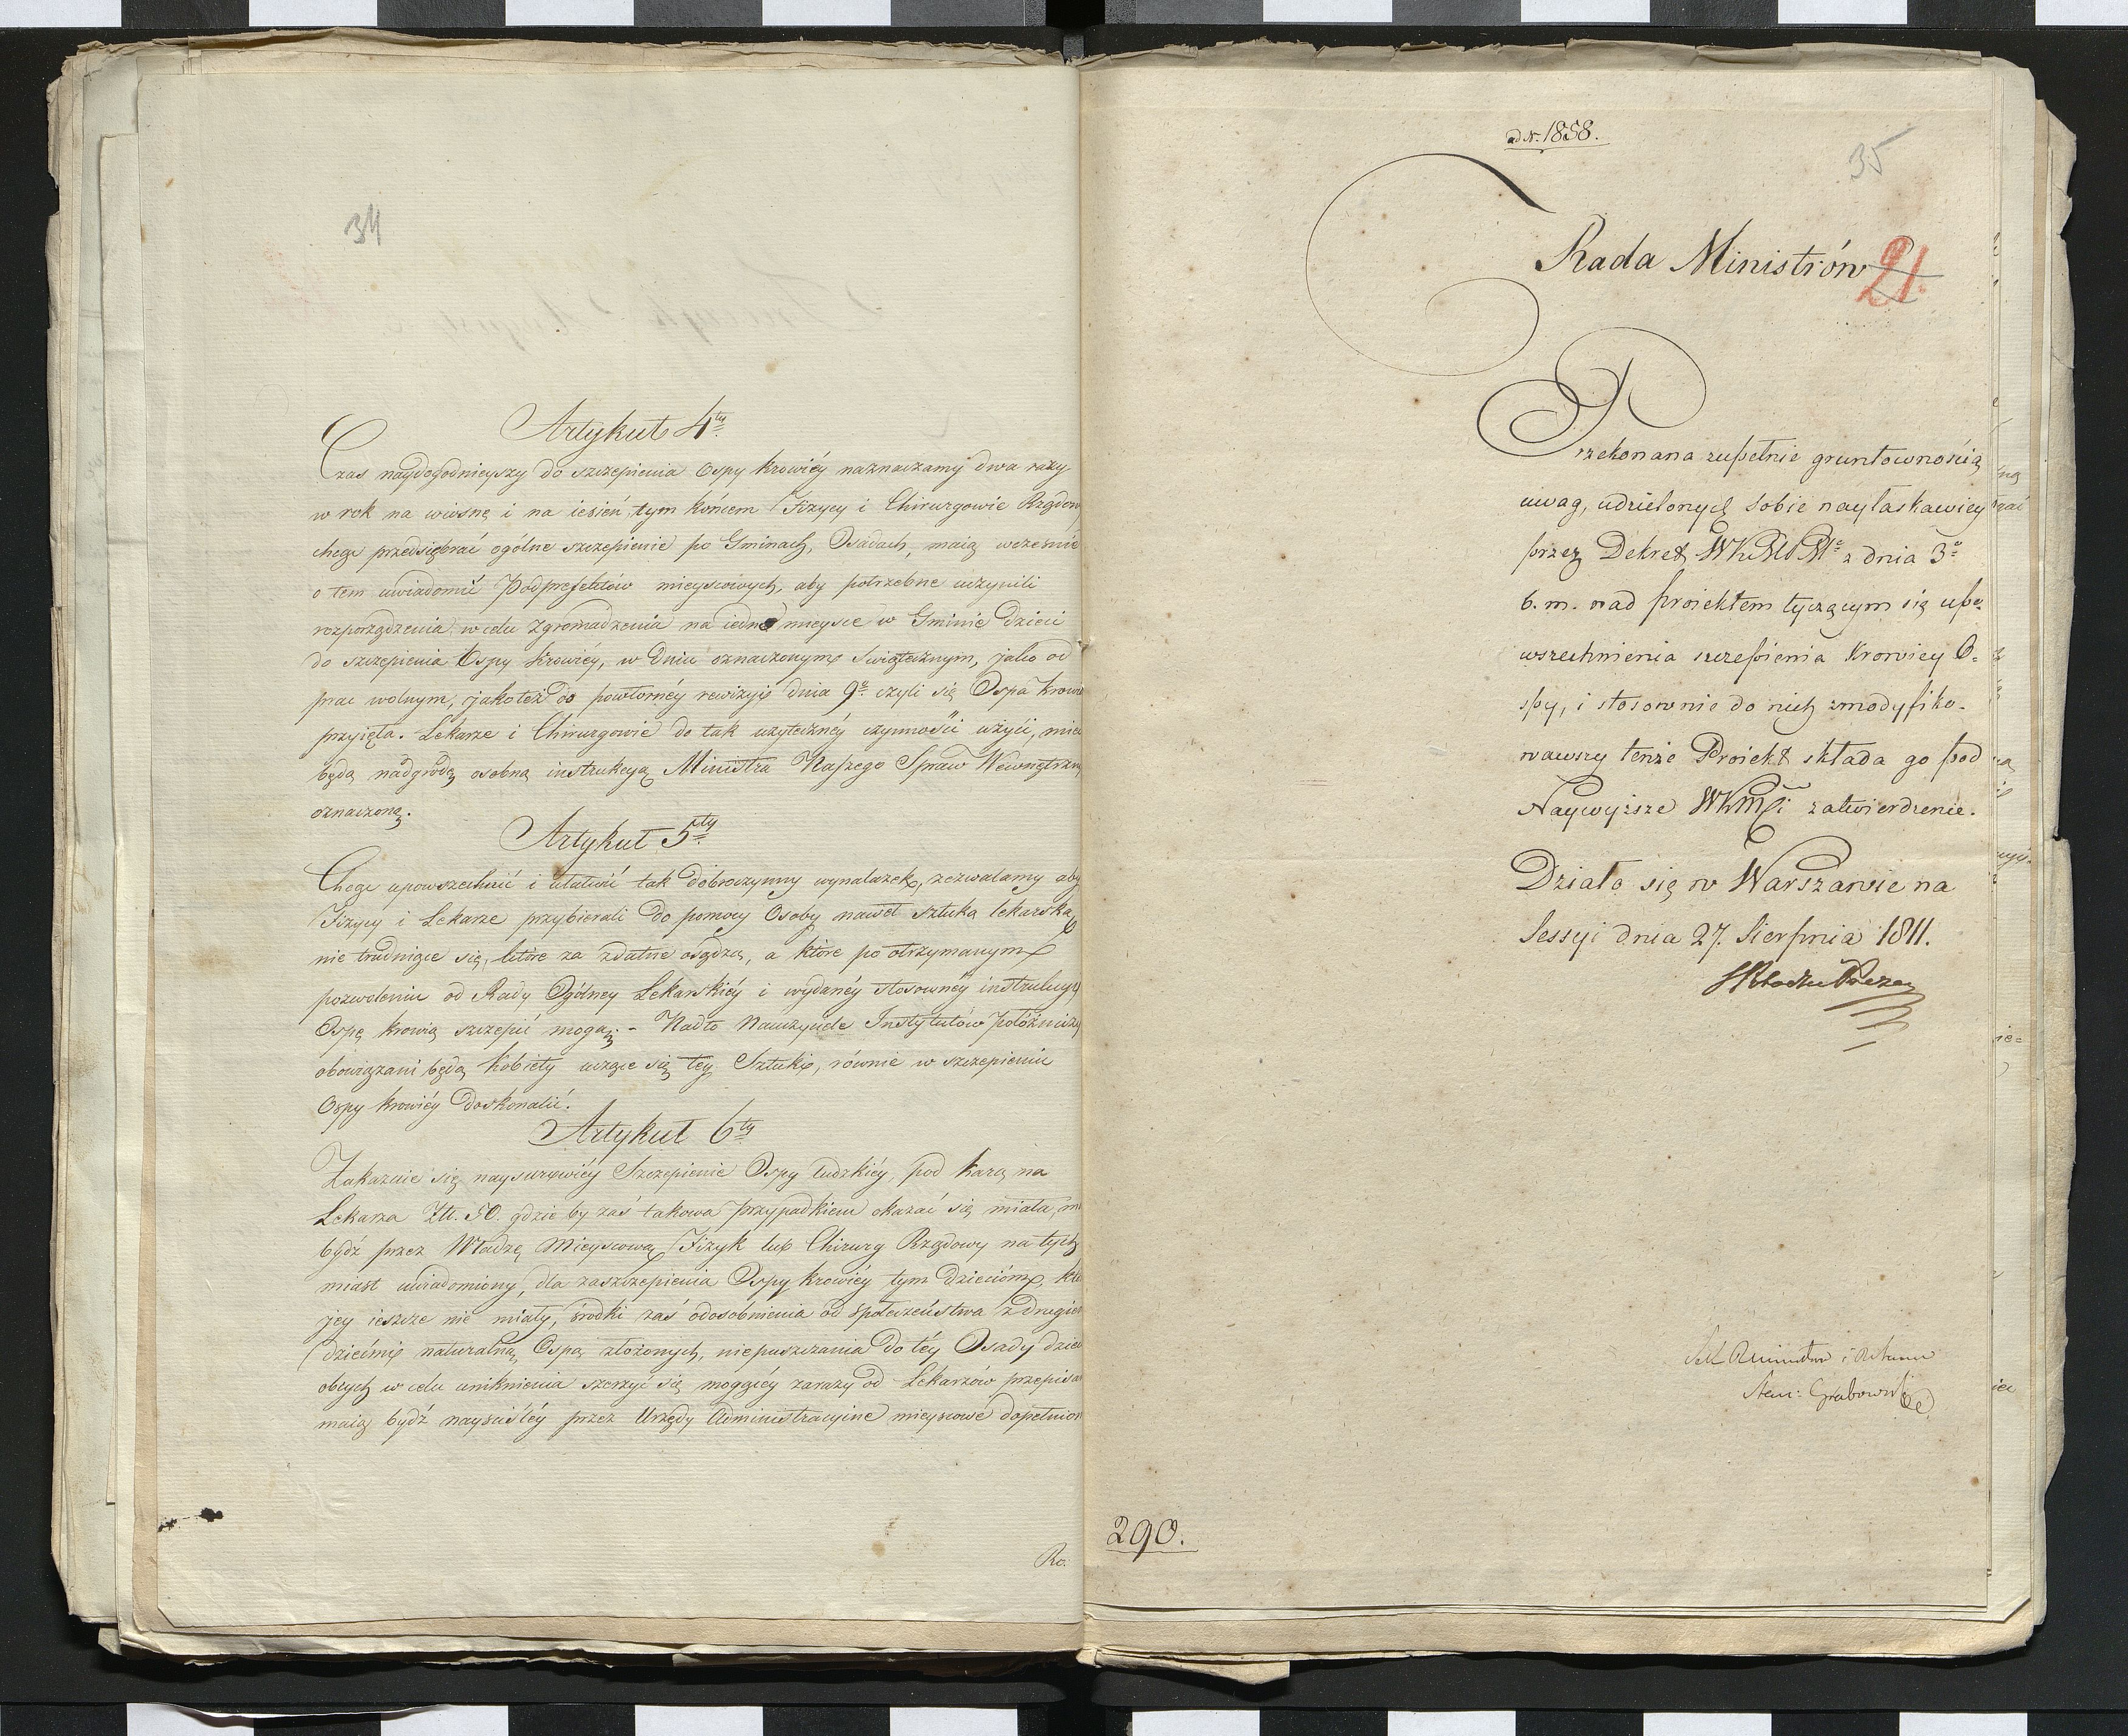 34
Artykuł 4ty
Czas naydogodnieyszy do szczepienia Ospy krowiéy naznaczamy dwa razy
w rok na wiosnę i na iesień, tym końcem Fizycy i Chirurgowie Rządow
chcąc przedsiębrać ogólne szczepienie po Gminach, Osadach, maią wcześnie
o tem uwiadomić Podprefektów mieyscowych, aby potrzebne uczynili
rozporządzenia w celu zgromadzenia na iedno mieysce w Gminie Dzieci
do szczepienia Ospy krowiéy, w Dniu oznaczonym świątecznym, jako od
prac wolnym, jakoteż do powtornéy rewizyi dnia 9o czyli się Ospa krowia
przyięła. Lekarze i Chirurgowie do tak użytecznéy czynności użyci, mieć
będą nadgrodę osobną instrukcyą Ministra Naszego Spraw Wewnętrzny
oznaczoną.
Artykuł 5ty
Chcąc upowszechnić i ułatwić tak dobroczynny wynalazek, zezwalamy aby
Fizycy i Lekarze przybierali do pomocy Osoby nawet sztuką lekarską
nie trudniące się, które za zdatne osądzą, a które po otrzymanym
pozwoleniu od Rady Ogólney Lekarskiéy i wydanéy stosownéy instrukcyi
Ospę krowią szczepić mogą. - Nadto Nauczyciele Instytutów Położniczy
obowiązani będą Kobiety uczące się tey Sztuki, równie w szczepieniu
Ospy krowiéy doskonalić.
Artykuł 6ty
Zakazuie się naysurowiéy Szczepienie Ospy ludzkiéy, pod karą na
Lekarza Złł. 50. gdzie by zaś takowa przypadkiem okazać się miała, m
bydź przez Władzę Mieyscową Fizyk lub Chirurg Rządowy na tych
miast uwiadomiony, dla zaszczepienia Ospy krowiéy tym Dzieciom, któ
jey ieszcze nie miały, środki zaś odosobnienia od społeczeństwa z drugiem
Dziećmi naturalną Ospą złożonych, niepuszczania do téy Osady dzieci
obcych w celu uniknienia szerzyć się mogącéy zarazy od Lekarzów przepisa
maią bydź nayściśléy przez Urzędy Administracyine mieyscowé dopełnion
Ro.
ad N. 1858.
35
Rada Ministrów
21.
Przekonana zupełnie gruntownością
uwag, udzielonych sobie nayłaskawiey
przez Dekret z dnia 3o
b. m. nad proiektem tyczącym się upo
wszechnienia szczepienia Krowiey O-
spy, i stosownie do nich zmodyfiko-
wawszy tenże Proiekt składa go pod
Naywyższe WKMci zatwierdzenie.
Działo się w Warszawie na
Sessyi dnia 27. Sierpnia 1811.
Prezes
Grabowski
290.